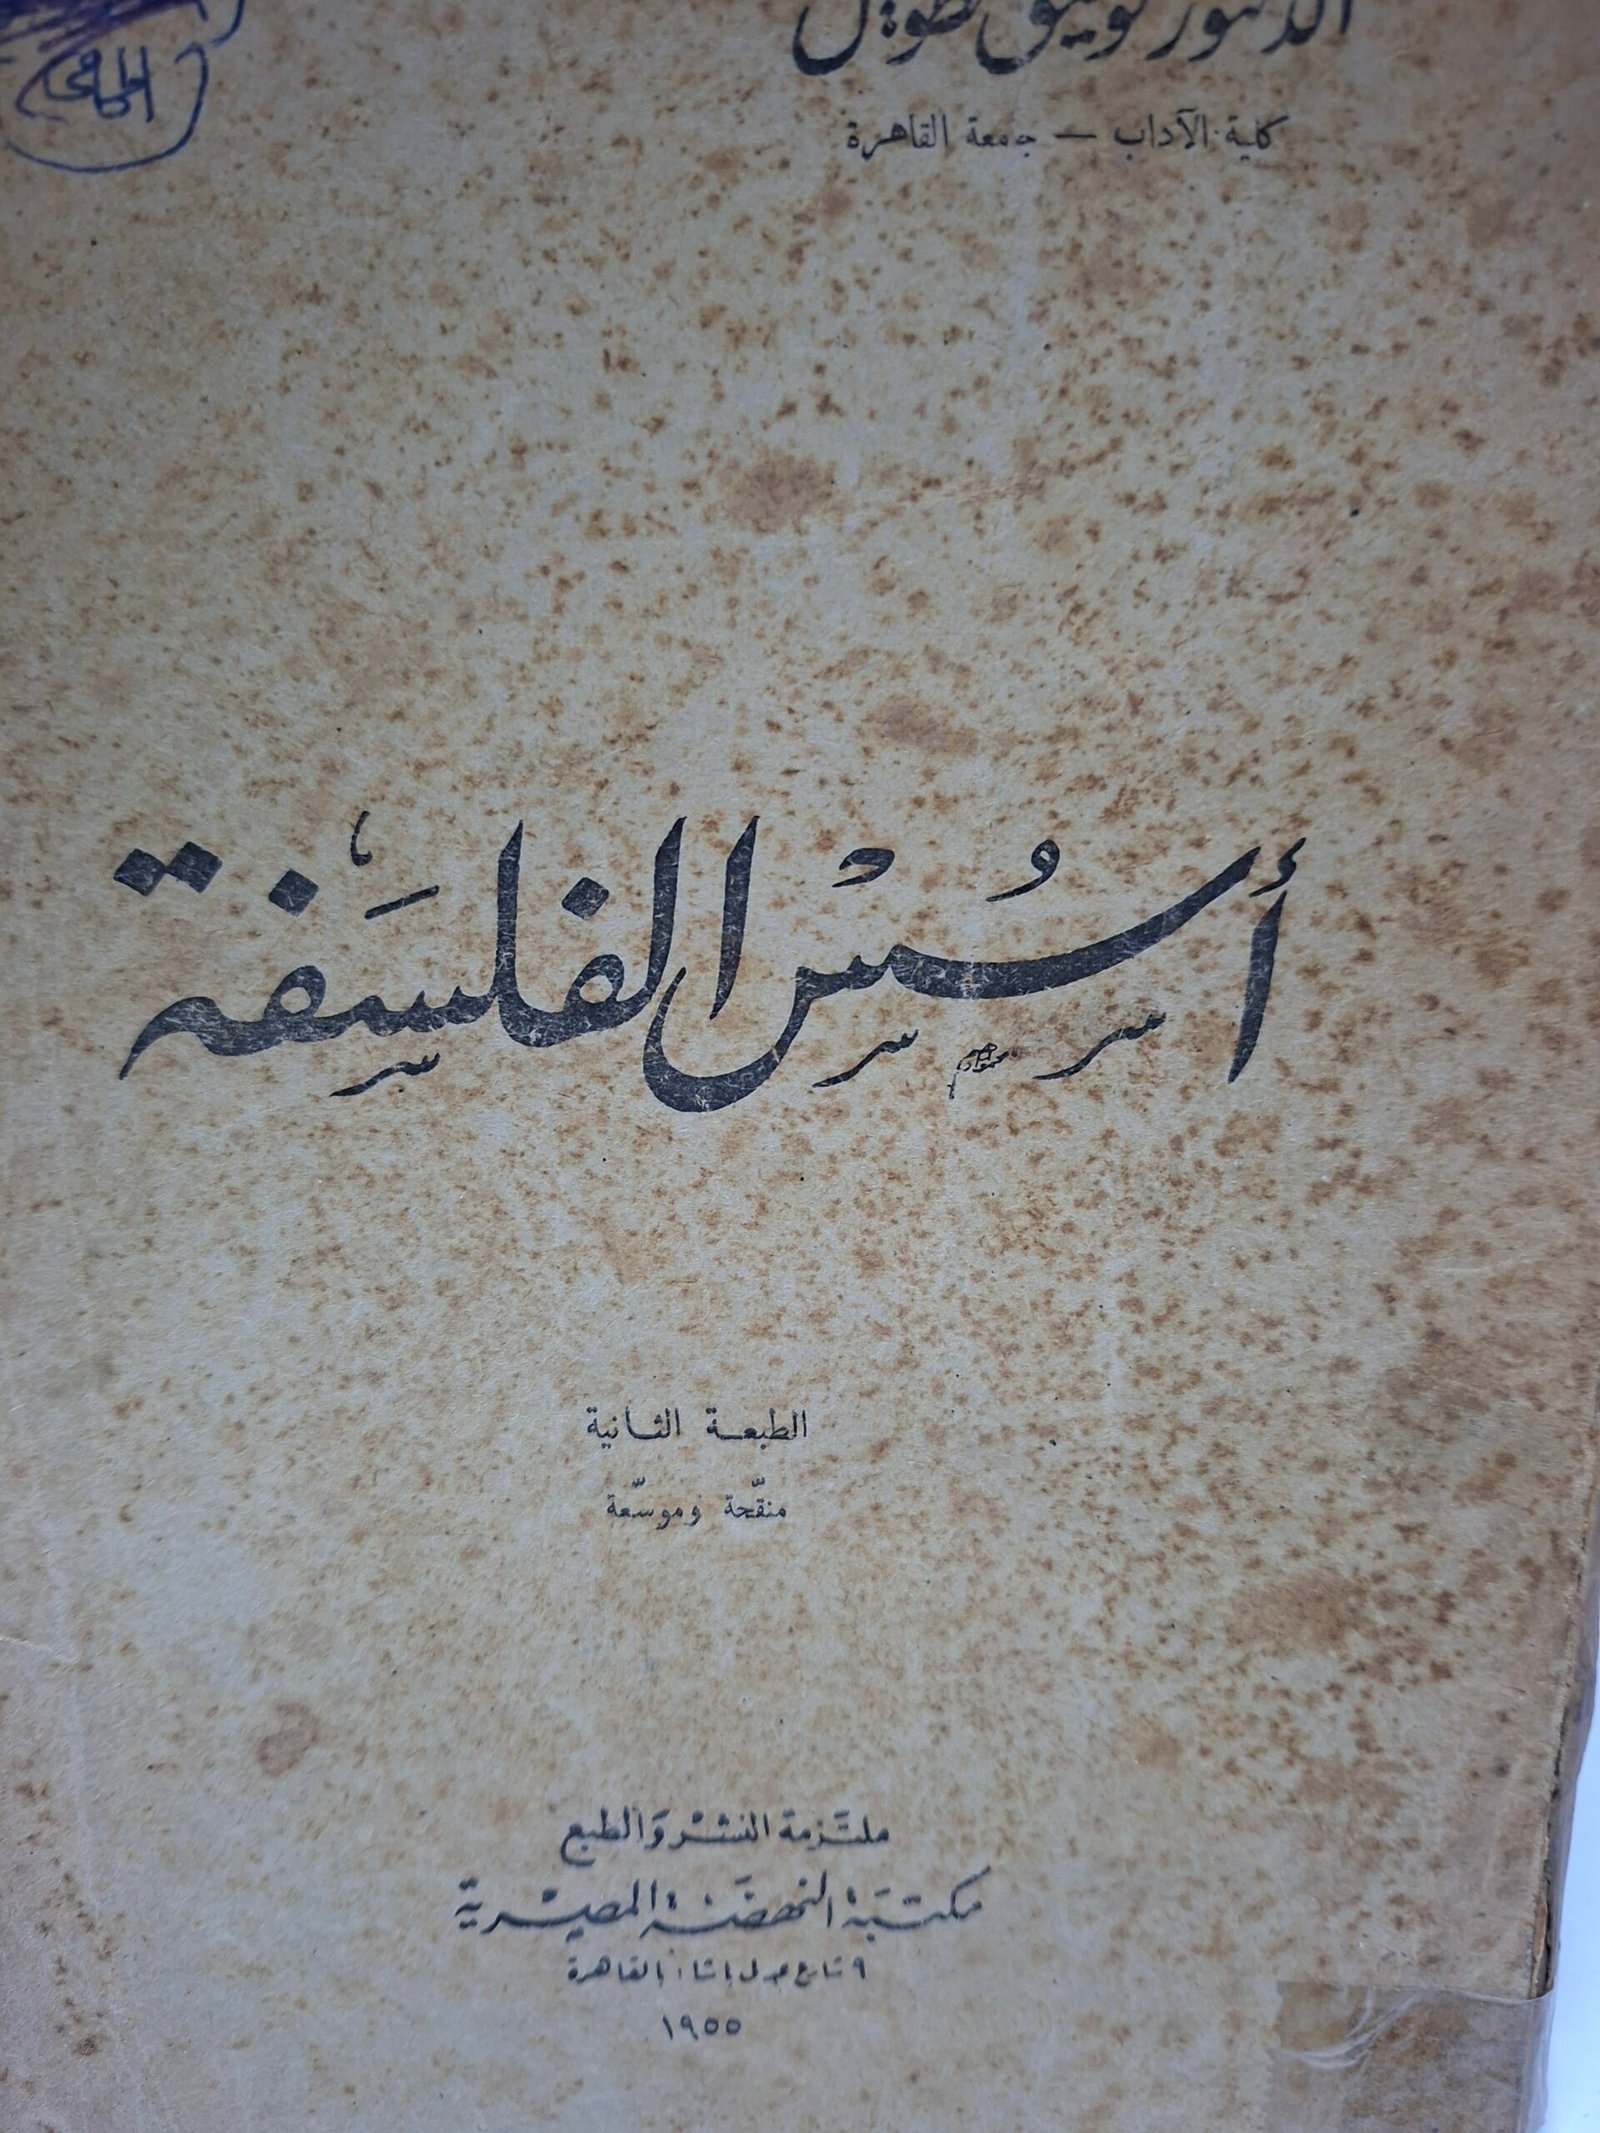 الدكتور توفيق الطويل
كلية الآداب — جامعة القاهرة
المحامى
أُسُسْ الفلسَفة
الطبعة الثانية
منقّحة وموسّعة
ملتَزمة النشْر وَالطبع
مكتَبَة النهضَة المصْرية
٩ شارع عدلى باشا بالقاهرة
١٩٥٥